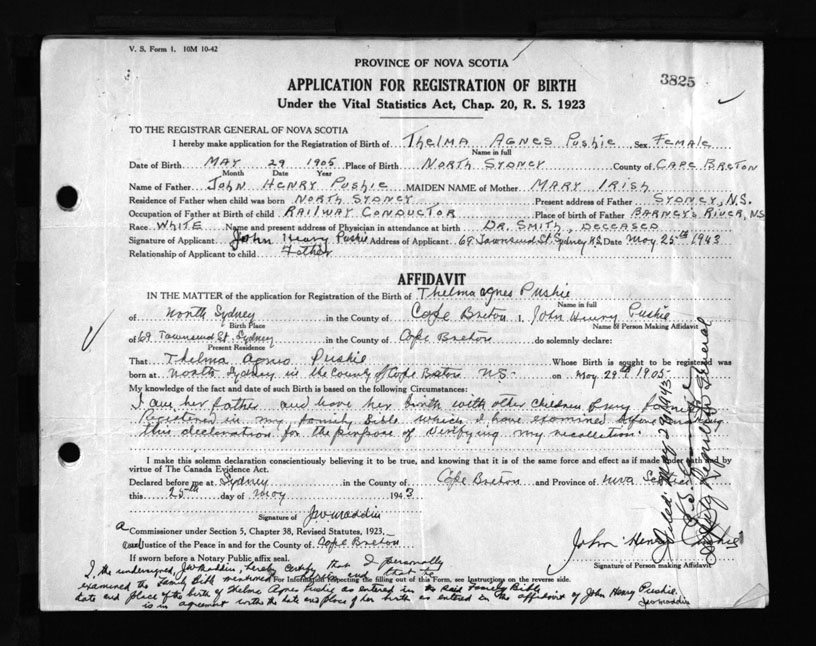 V. S. Form 1. 10M 10-42
PROVINCE OF NOVA SCOTIA
3825
APPLICATION FOR REGISTRATION OF BIRTH
Under the Vital Statistics Act, Chap. 20, R. S. 1923
TO THE REGISTRAR GENERAL OF NOVA SCOTIA
I hereby make application for the Registration of Birth of THELMA AGNES PUSHIE Sex FEMALE
Name in full
Date of Birth MAY 29 1905 Place of Birth NORTH SYDNEY County of CAPE BRETON
Month Date Year
Name of Father JOHN HENRY PUSHIE MAIDEN NAME of Mother MARY IRISH
Residence of Father when child was born NORTH SYDNEY Present address of Father SYDNEY, N.S.
Occupation of Father at Birth of child RAILWAY CONDUCTOR Place of birth of Father BARNEY'S RIVER, NS
Race WHITE Name and present address of Physician in attendance at birth DR. SMITH, DECEASED
Signature of Applicant John Henry Pushie Address of Applicant 69 Townsend St. Sydney N.S. Date May 25th 1943
Relationship of Applicant to child Father
AFFIDAVIT
IN THE MATTER of the application for Registration of the Birth of Thelma Agnes Pushie
Name in full
of North Sydney in the County of Cape Breton I, John Henry Pushie
Birth Place Name of Person Making Affidavit
of 69 Townsend St. Sydney in the County of Cape Breton do solemnly declare:
Present Residence
That Thelma Agnes Pushie Whose Birth is sought to be registered was
born at North Sydney in the County of Cape Breton N.S. on May 29th 1905
My knowledge of the fact and date of such Birth is based on the following Circumstances:
I am her father and have her birth with other children of my family
Registered in my family Bible which I have examined before making
this declaration for the purpose of verifying my recollection.
I make this solemn declaration conscientiously believing it to be true, and knowing that it is of the same force and effect as if made under oath and by
virtue of The Canada Evidence Act.
Declared before me at Sydney in the County of Cape Breton and Province of Nova Scotia
this 25th day of May 1943
Signature of J W Maddin
A Commissioner under Section 5, Chapter 38, Revised Statutes, 1923,
and Justice of the Peace in and for the County of Cape Breton
John Henry Pushie
If sworn before a Notary Public affix seal.
Signature of Person making Affidavit
For Information respecting the filling out of this Form, see Instructions on the reverse side.
I the undersigned, J W Maddin, hereby certify that I personally
examined the Family Bible mentioned and that the
date and place of the birth of Thelma Agnes Pushie as entered in the said Family Bible
is in agreement with the date and place of her birth as entered in the affidavit of John Henry Pushie.
J W Maddin
Filed: May 28/1943
Deputy Registrar General